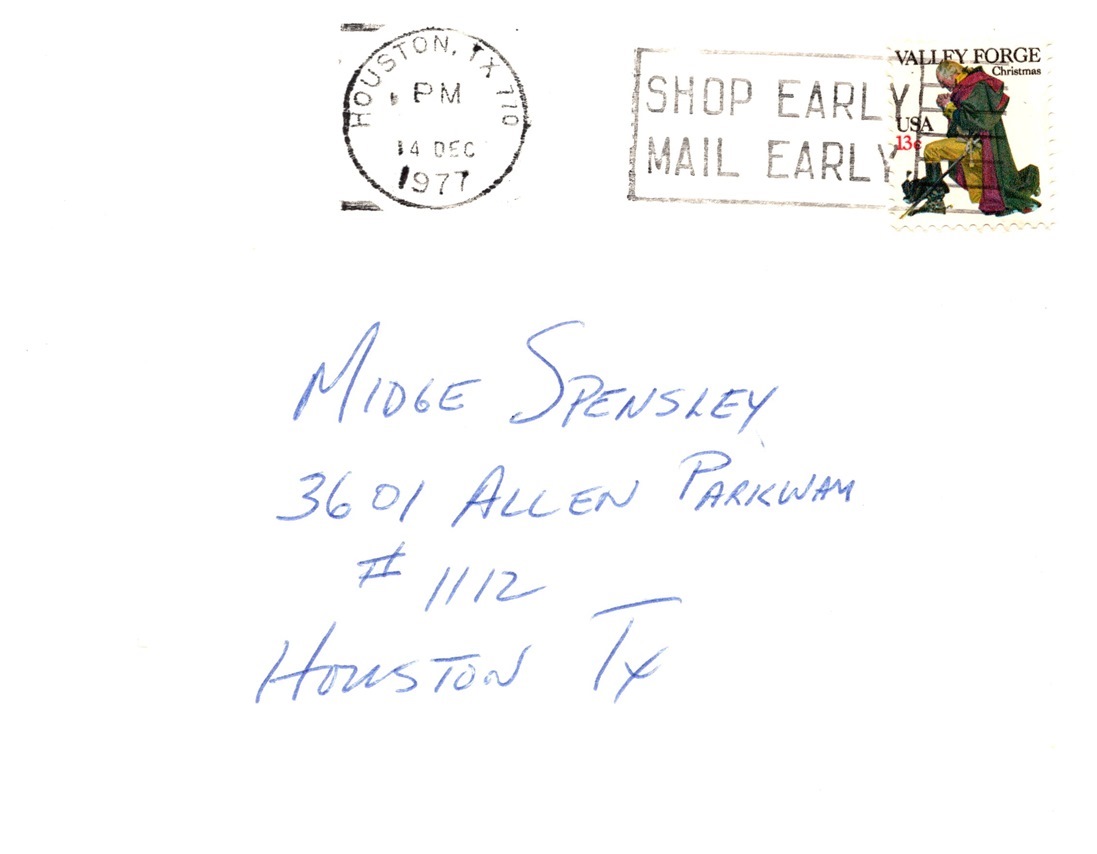 HOUSTON, TX 770
PM
14 DEC
1977
SHOP EARLY
MAIL EARLY
VALLEY FORGE
Christmas
USA
13c
MIDGE SPENSLEY
3601 ALLEN PARKWAY
# 1112
HOUSTON TX